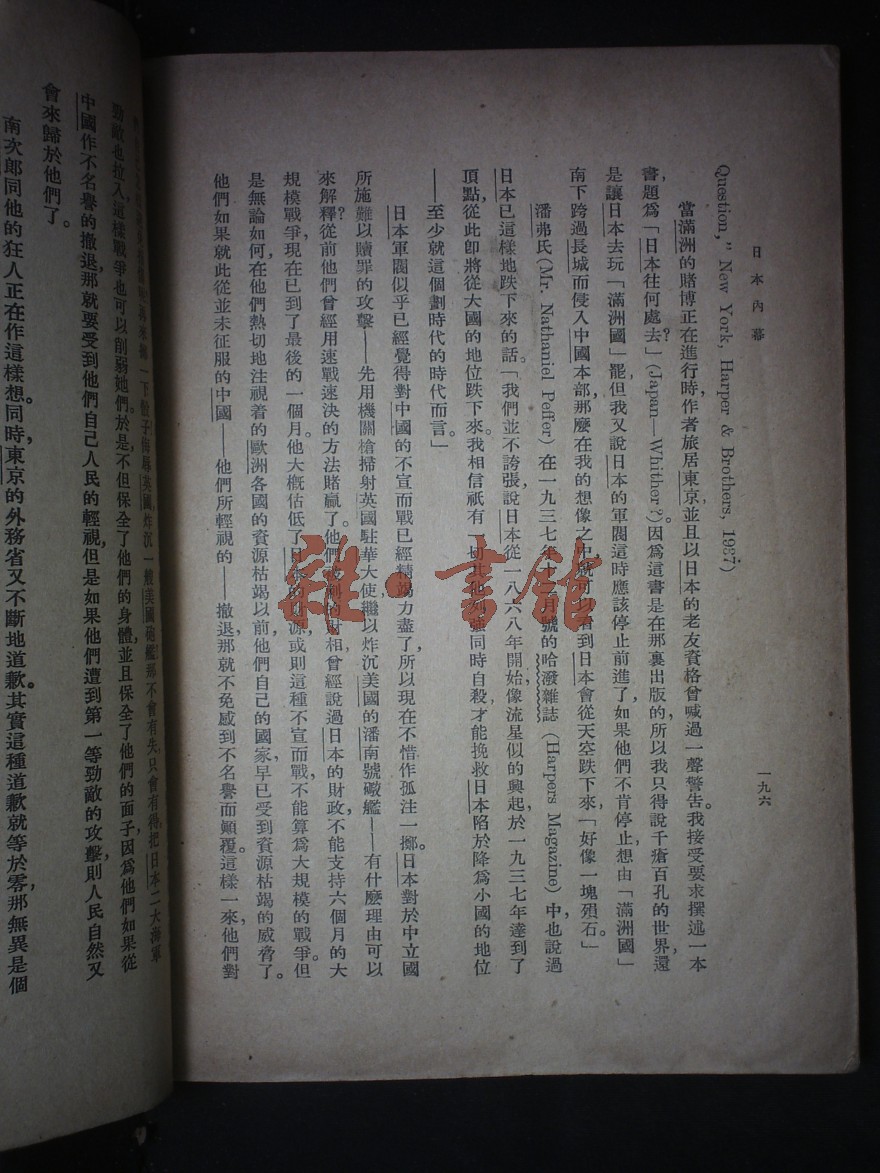 日本內幕
一九六
Question," New York, Harper & Brothers, 1937)
當滿洲的賭博正在進行時，作者旅居東京，並且以日本的老友資格曾喊過一聲警告。我接受要求撰述一本
書，題爲「日本往何處去？」(Japan—Whither?)因爲這書是在那裏出版的，所以我只得說千瘡百孔的世界，還
是讓日本去玩「滿洲國」罷，但我又說日本的軍閥這時應該停止前進了，如果他們不肯停止，想由「滿洲國」
南下跨過長城而侵入中國本部，那麼在我的想像之中，就可以看到日本會從天空跌下來，「好像一塊殞石。」
潘弗氏(Mr. Nathaniel Peffer)在一九三七年十二月號的哈潑雜誌(Harpers Magazine)中，也說過
日本已這樣地跌下來的話。「我們並不誇張說日本從一八六八年開始像流星似的興起，於一九三七年達到了
頂點，從此卽將從大國的地位跌下來。我相信祇有一切其他列強同時自殺，才能挽救日本陷於降爲小國的地位
——至少就這個劃時代的時代而言。」
日本軍閥似乎已經覺得對中國的不宣而戰已經精竭力盡了，所以現在不惜作孤注一擲。日本對於中立國
所施難以贖罪的攻擊——先用機關槍掃射英國駐華大使，繼以炸沉美國的潘南號礮艦——有什麼理由可以
來解釋？從前他們曾經用速戰速決的方法賭贏了。他們被刺的財相曾經說過，日本的財政不能支持六個月的大
規模戰爭，現在已到了最後的一個月。他大概估低了日本的財源，或則這種不宣而戰，不能算爲大規模的戰爭。但
是無論如何，在他們熱切地注視着的歐洲各國的資源枯竭以前，他們自己的國家，早已受到資源枯竭的威脅了。
他們如果就此從並未征服的中國——他們所輕視的——撤退，那就不免感到不名譽而顚覆。這樣一來，他們對
一下骰子，侮辱英國，炸沉一艘美國砲艦，那不會有失，只會有得，把日本二大海軍
勁敵也拉入這樣戰爭，也可以削弱她們。於是，不但保全了他們的身體，並且保全了他們的面子，因爲他們如果從
中國作不名譽的撤退，那就要受到他們自己人民的輕視，但是如果他們遭到第一等勁敵的攻擊，則人民自然又
會來歸於他們了。
南次郎同他的狂人正在作這樣想。同時，東京的外務省又不斷地道歉，其實這種道歉就等於零，那無異是個
雜·書館